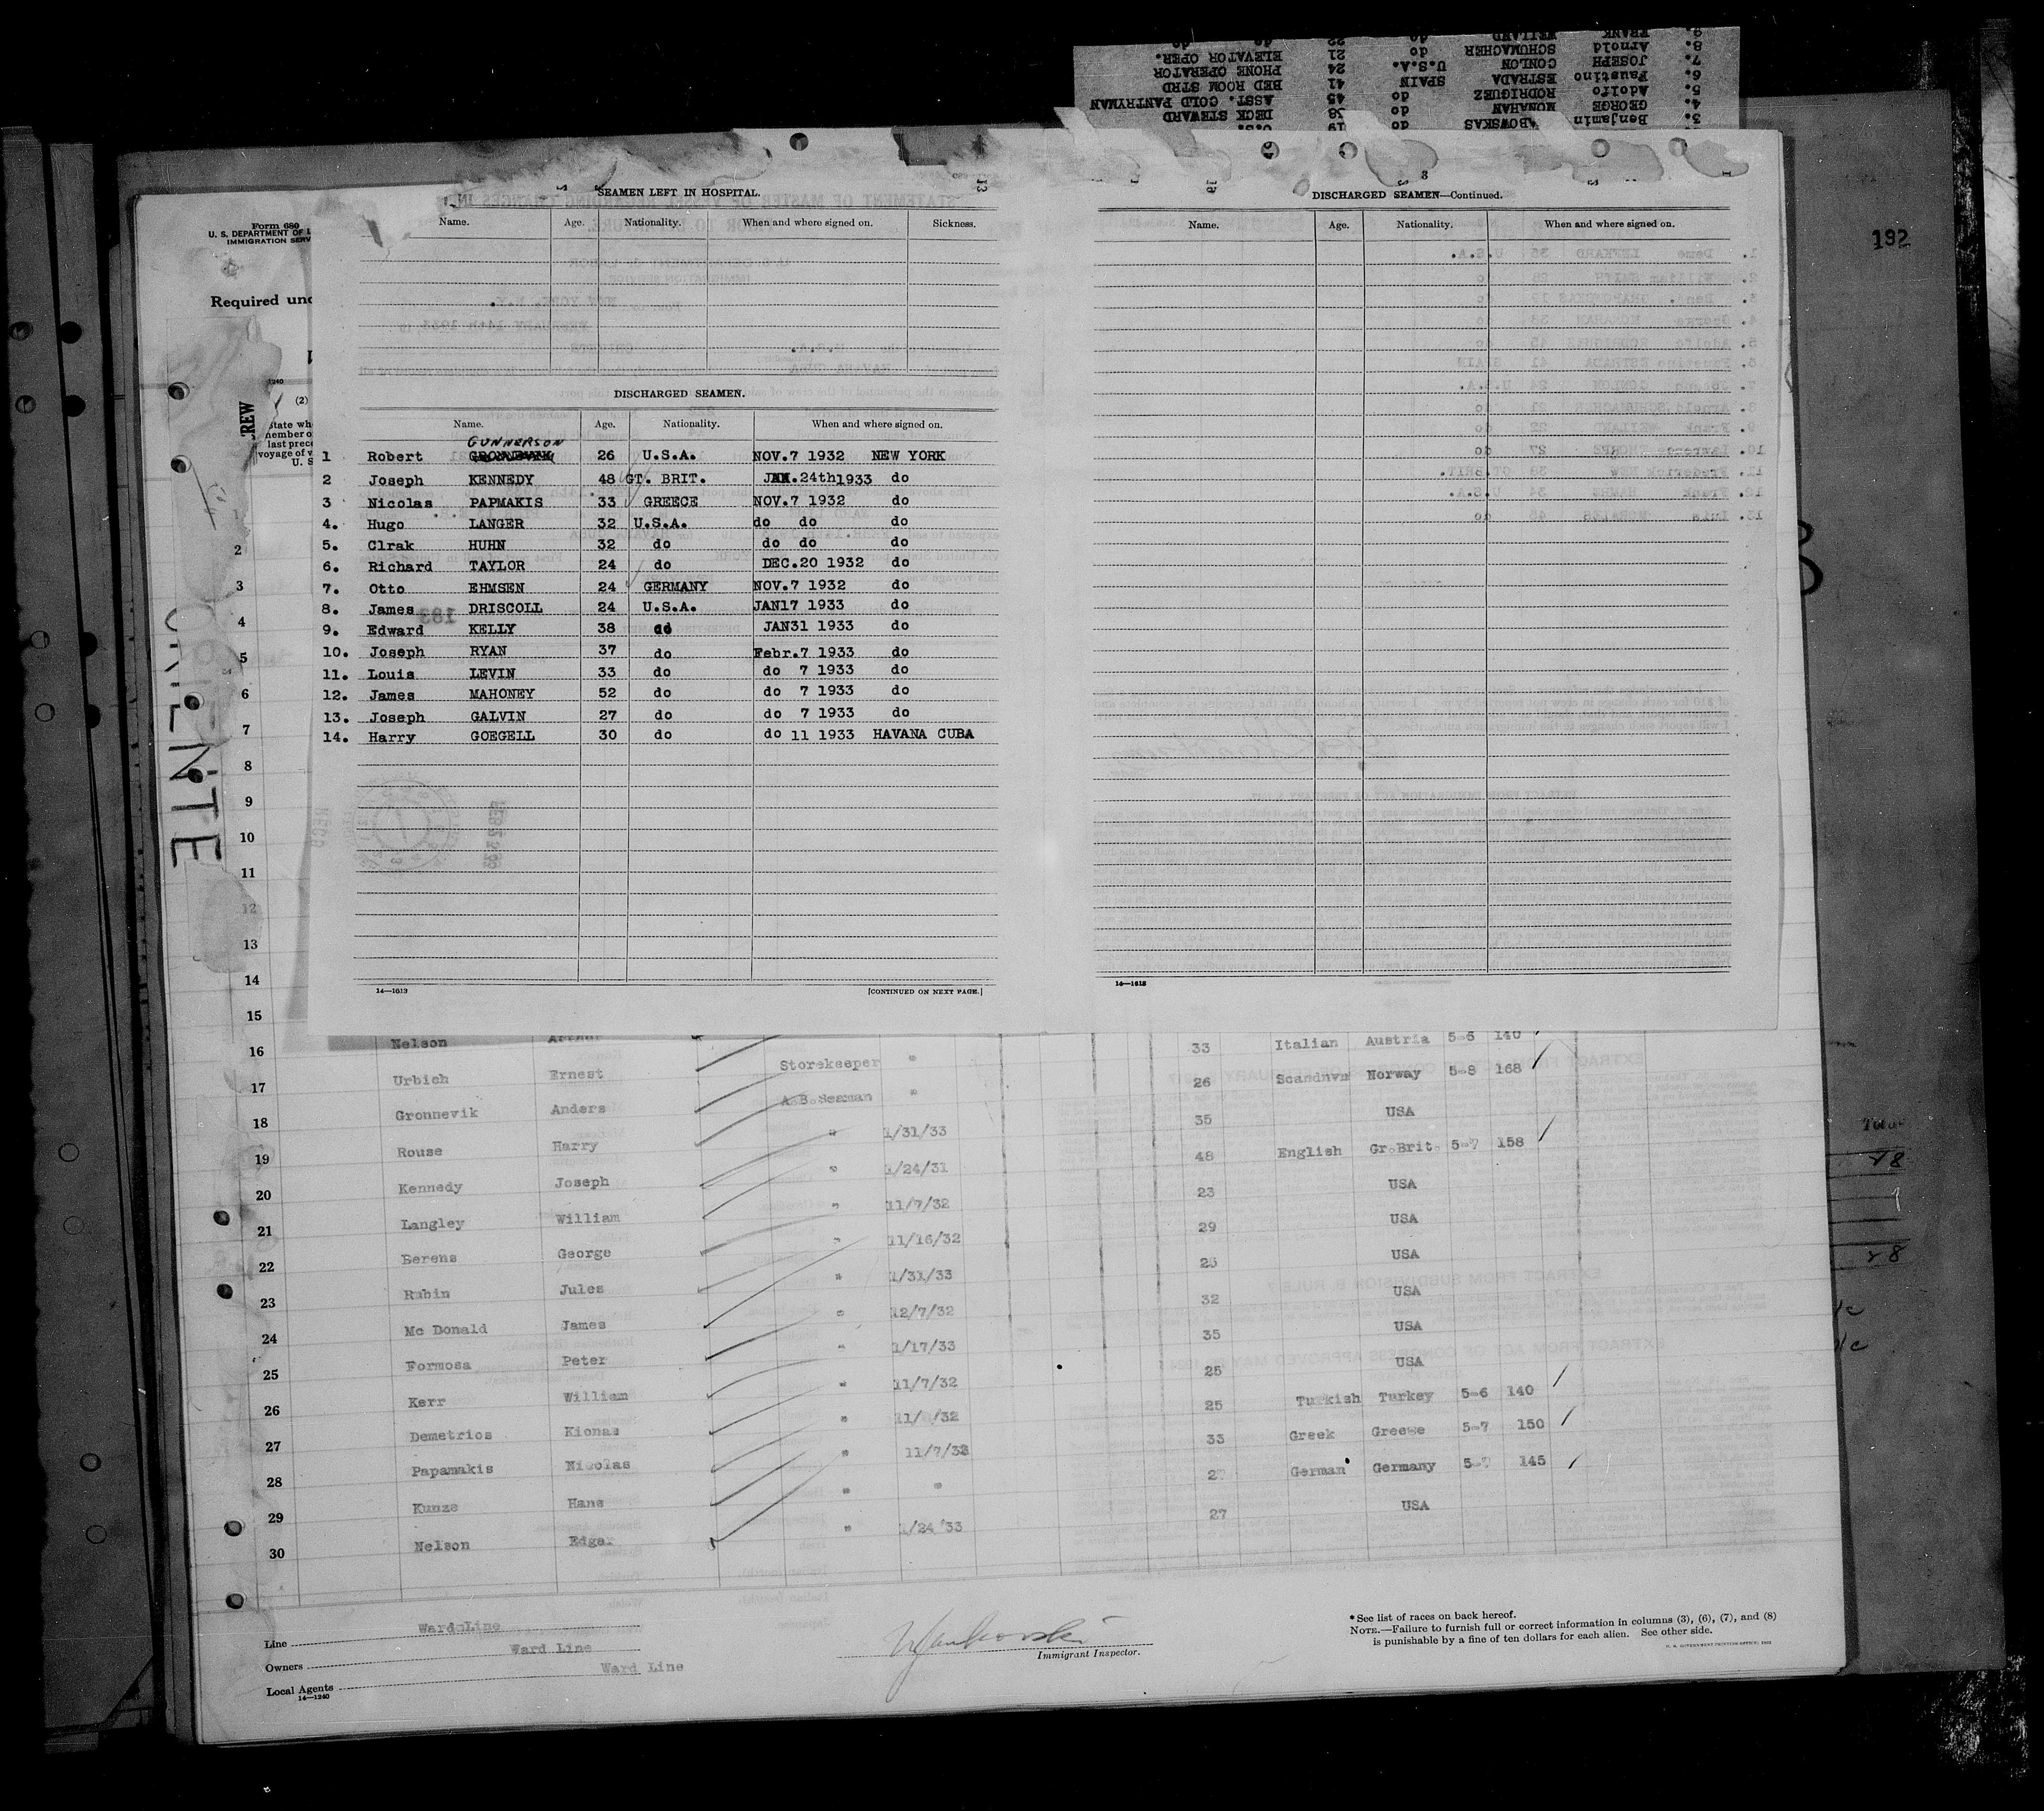 9. FRANK WEILAND do 22 do do
8. Arnold SCHUMACHER do 21 ELEVATOR OPER.
7. JOSEPH CONLON U.S.A. 24 PHONE OPERATOR
6. Faustino ESTRADA SPAIN 41 BED ROOM STRD
5. Adolfo RODRIGUEZ do 45 ASST. COLD PANTRYMAN
4. GEORGE MONAHAN do 38 DECK STEWARD
3. Benjamin do 19
192
Form 680
U. S. DEPARTMENT OF L
IMMIGRATION SERV
Required und
1240
(2)
State whe
member o
last prece
voyage of v
U. S
CREW
ORIENTE
13
SEAMEN LEFT IN HOSPITAL.
Name. Age. Nationality. When and where signed on. Sickness.
DISCHARGED SEAMEN.
Name. Age. Nationality. When and where signed on.
GUNNERSON
1 Robert 26 U.S.A. NOV.7 1932 NEW YORK
2 Joseph KENNEDY 48 GT. BRIT. JAN.24th1933 do
3 Nicolas PAPMAKIS 33 GREECE NOV.7 1932 do
4. Hugo LANGER 32 U.S.A. do do do
5. Clrak HUHN 32 do do do do
6. Richard TAYLOR 24 do DEC.20 1932 do
7. Otto EHMSEN 24 GERMANY NOV.7 1932 do
8. James DRISCOLL 24 U.S.A. JAN17 1933 do
9. Edward KELLY 38 do JAN31 1933 do
10. Joseph RYAN 37 do Febr.7 1933 do
11. Louis LEVIN 33 do do 7 1933 do
12. James MAHONEY 52 do do 7 1933 do
13. Joseph GALVIN 27 do do 7 1933 do
14. Harry GOEGELL 30 do do 11 1933 HAVANA CUBA
14—1613 [CONTINUED ON NEXT PAGE.]
8
DISCHARGED SEAMEN—Continued.
Name. Age. Nationality. When and where signed on.
14—1613
2
3
4
5
6
7
8
9
10
11
12
13
14
15
16 Nelson Arthur
17 Urbich Ernest Storekeeper " 33 Italian Austria 5-6 140
18 Gronnevik Anders A.B.Seaman " 26 Scandnvn Norway 5-8 168
19 Rouse Harry " 1/31/33 35 USA
20 Kennedy Joseph " 1/24/31 48 English Gr.Brit. 5-7 158
21 Langley William " 11/7/32 23 USA
22 Berens George " 11/16/32 29 USA
23 Rabin Jules " 1/31/33 25 USA
24 Mc Donald James " 12/7/32 32 USA
25 Formosa Peter " 1/17/33 35 USA
26 Kerr William " 11/7/32 25 USA
27 Demetrios Kionas " 11/ /32 25 Turkish Turkey 5-6 140
28 Papamakis Nicolas " 11/7/32 33 Greek Greece 5-7 150
29 Kunze Hans " " 27 German Germany 5-7 145
30 Nelson Edgar " 1/24/33 27 USA
Total
28
1
28
Line Ward Line
Owners Ward Line
Local Agents Ward Line
14—1240
Immigrant Inspector.
* See list of races on back hereof.
NOTE.—Failure to furnish full or correct information in columns (3), (6), (7), and (8)
is punishable by a fine of ten dollars for each alien. See other side.